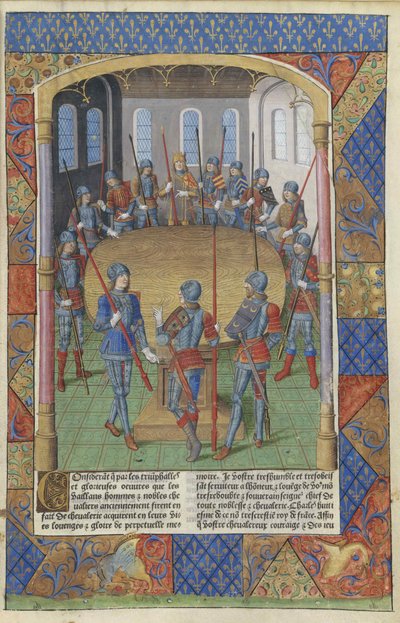 Considerāt q̄ par les triūphalles
et glorieuses oeuvres que les
vaillans hommes & nobles che
valiers anciennement firent en
fait de chevalerie acquirent en leurs vi
es louenges & gloire de perpetuelle me
moire. Je vostre treshumble et tresobeis
sāt serviteur a lhōneur, & louēge de vo
treredoubte & souverain seigne chief de
toute noblesse & chevalerie. Charles huiti
esme de ce nō
roy de frāce. Affin
q̄ vostre chevalereux courage & des ieu